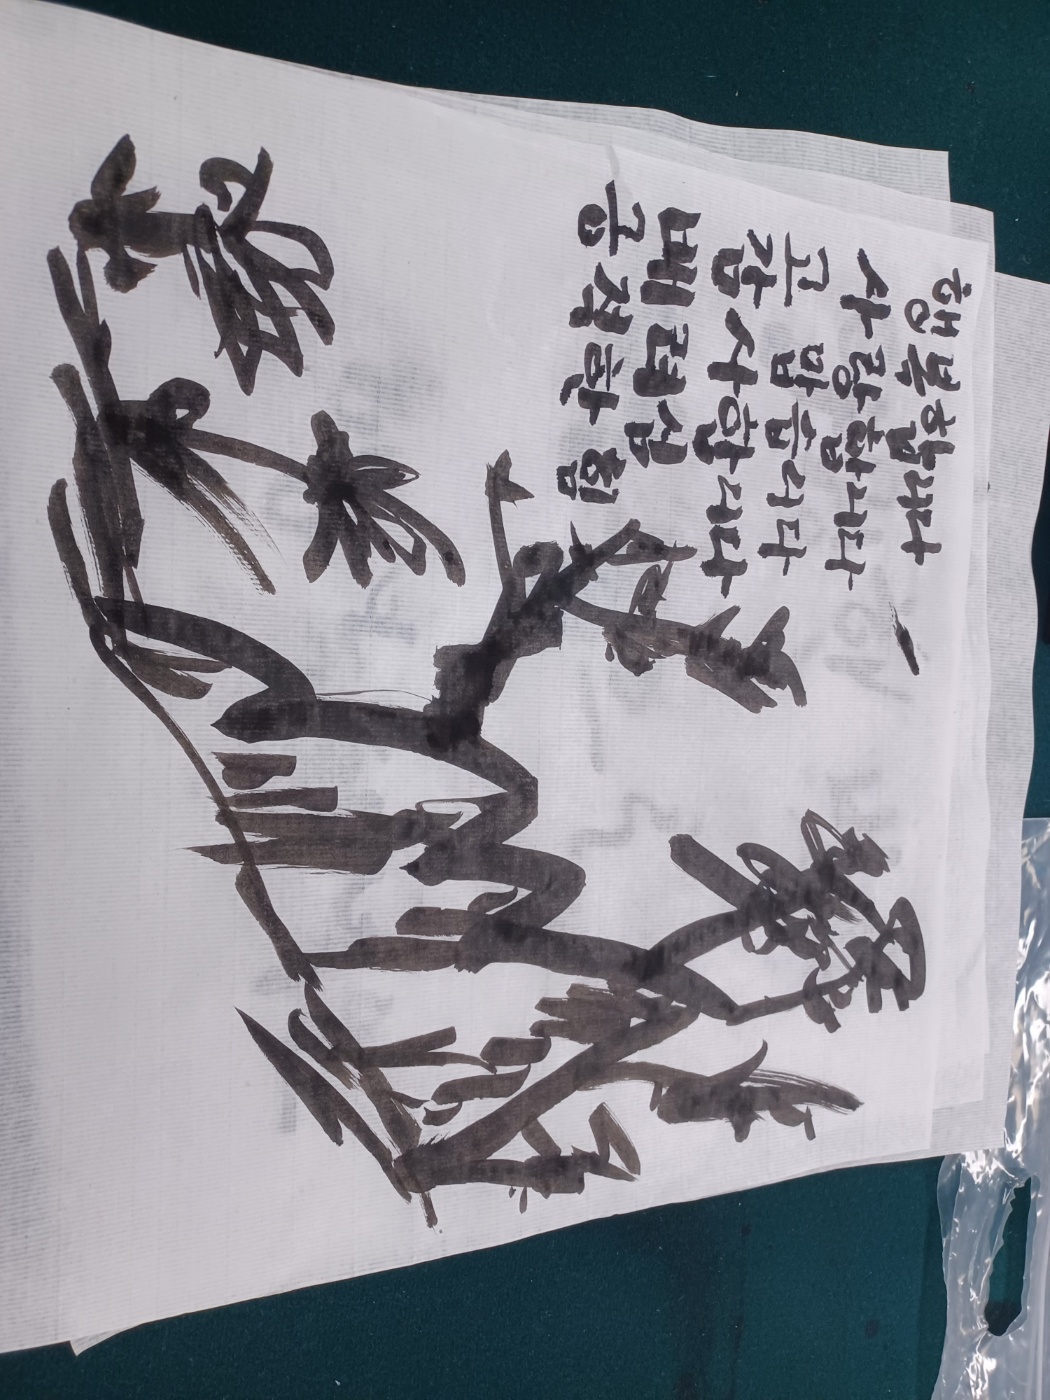 행복합니다
사랑합니다
고맙습니다
감사합니다
배려심
힘